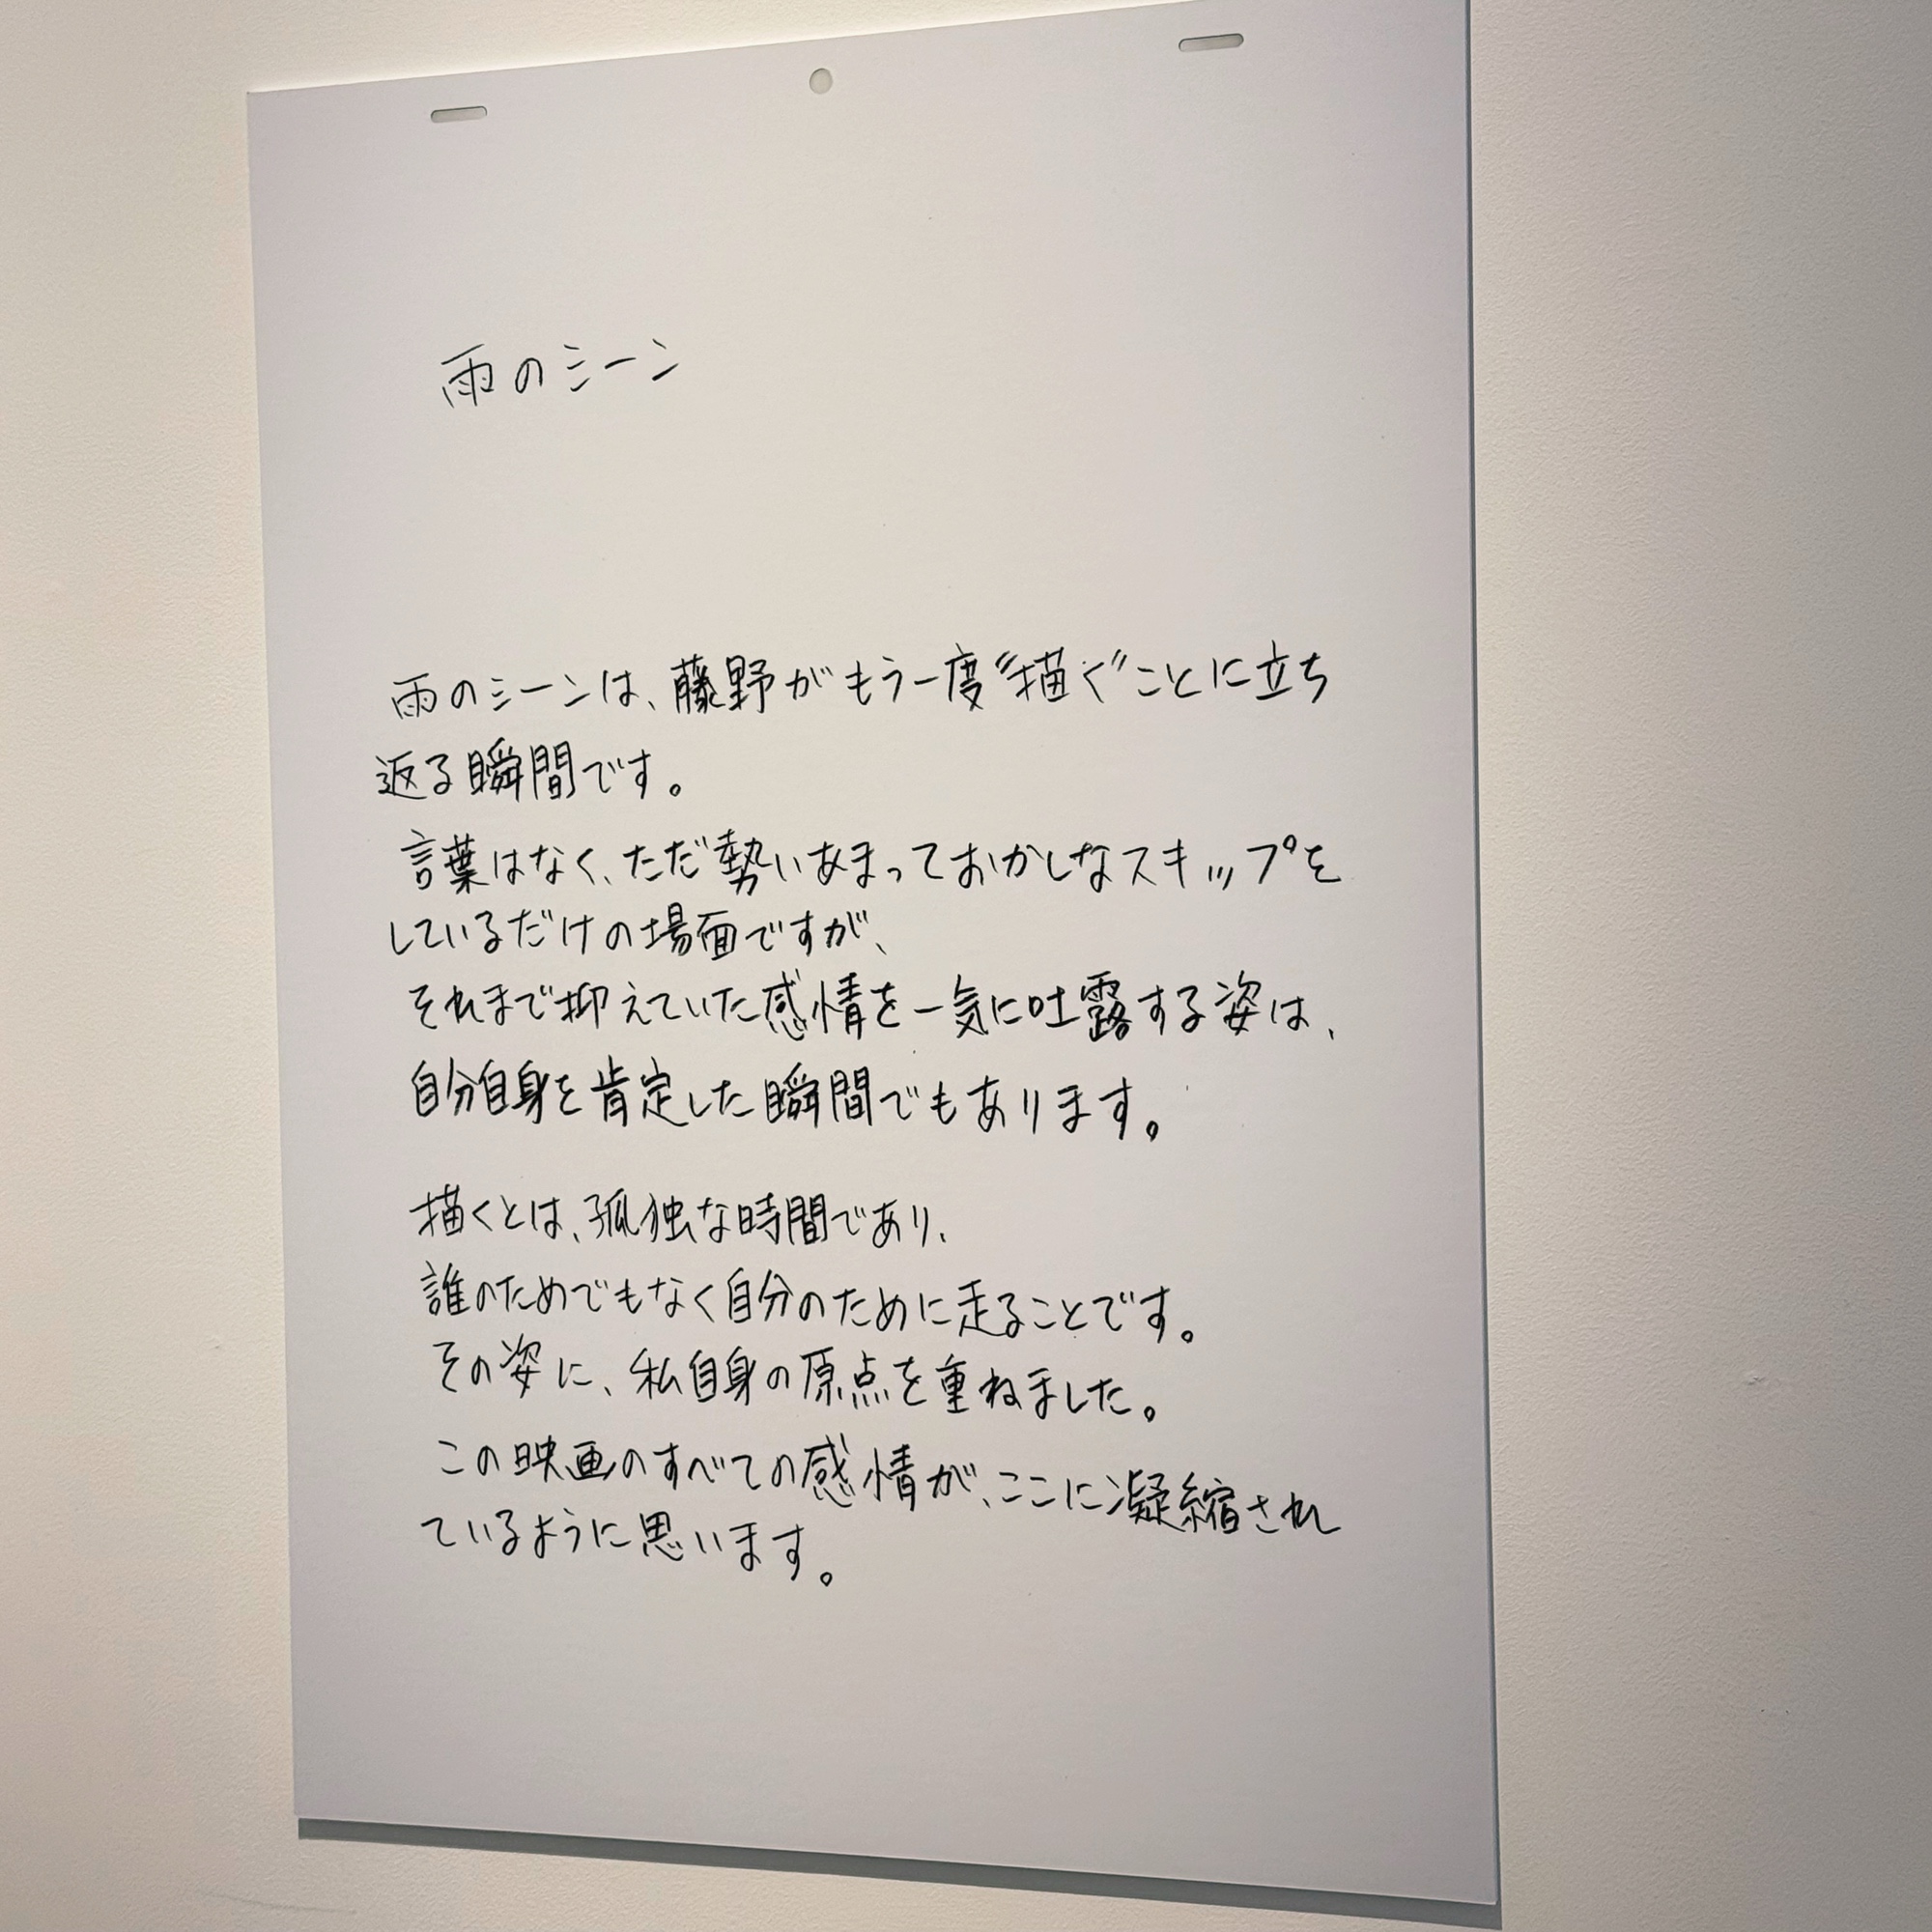 雨のシーン
雨のシーンは、藤野がもう一度〝描く〟ことに立ち
返る瞬間です。
言葉はなく、ただ勢いあまっておかしなスキップを
しているだけの場面ですが、
それまで抑えていた感情を一気に吐露する姿は、
自分自身を肯定した瞬間でもあります。
描くとは、孤独な時間であり、
誰のためでもなく自分のために走ることです。
その姿に、私自身の原点を重ねました。
この映画のすべての感情が、ここに凝縮され
ているように思います。